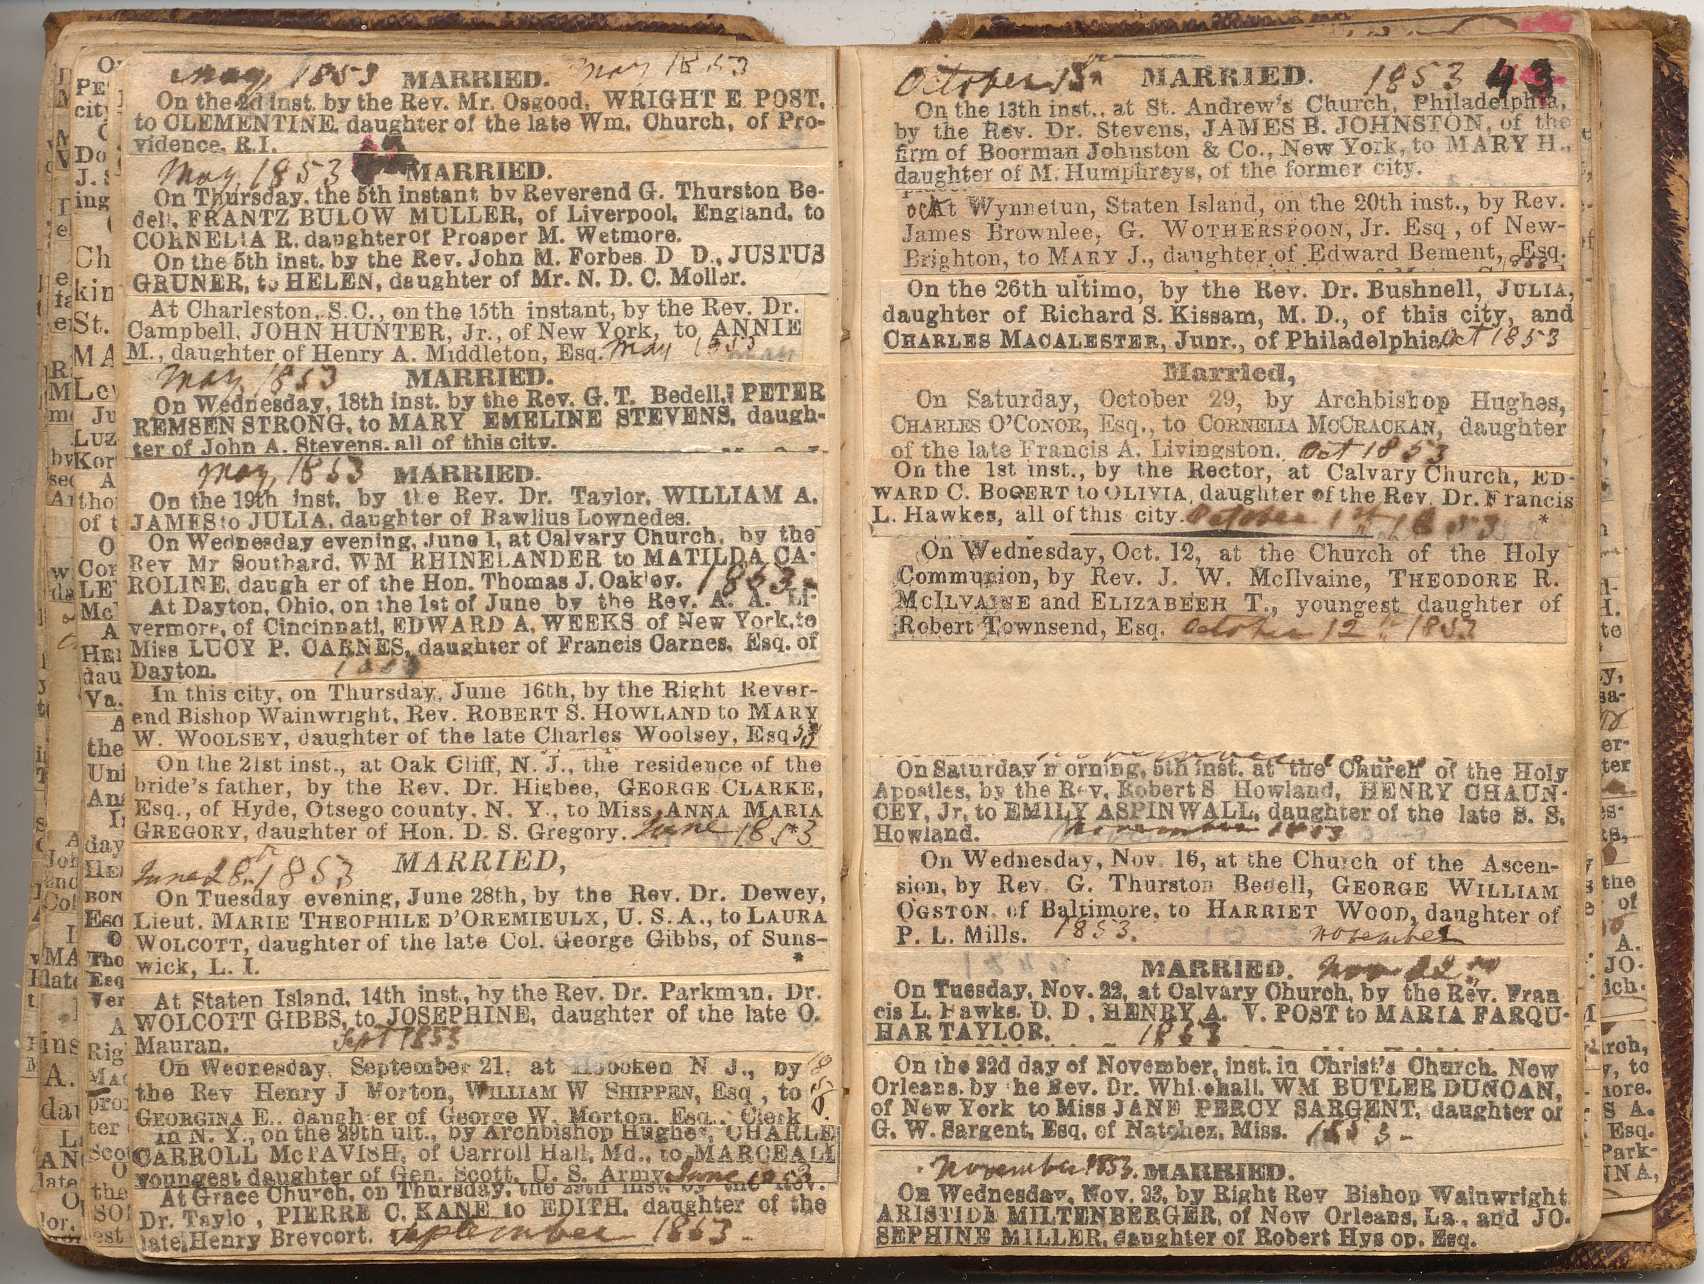 May 1853 MARRIED. May 1853
On the 2d inst. by the Rev. Mr. Osgood, WRIGHT E POST,
to CLEMENTINE, daughter of the late Wm. Church, of Pro-
vidence, R.I.
May, 1853 MARRIED.
On Thursday, the 5th instant by Reverend G. Thurston Be-
dell, FRANTZ BULOW MULLER, of Liverpool, England, to
CORNELIA R. daughter of Prosper M. Wetmore.
On the 5th inst. by the Rev. John M. Forbes D D., JUSTUS
GRUNER, to HELEN, daughter of Mr. N. D. C. Moller.
At Charleston, S.C., on the 15th instant, by the Rev. Dr.
Campbell, JOHN HUNTER, Jr., of New York, to ANNIE
M., daughter of Henry A. Middleton, Esq. May 1853
May, 1853 MARRIED.
On Wednesday, 18th inst. by the Rev. G. T. Bedell, PETER
REMSEN STRONG, to MARY EMELINE STEVENS, daugh-
ter of John A. Stevens, all of this city.
May, 1853 MARRIED.
On the 19th inst. by the Rev. Dr. Taylor, WILLIAM A.
JAMES to JULIA, daughter of Bawlius Lownedes.
On Wednesday evening, June 1, at Calvary Church, by the
Rev Mr Southard, WM RHINELANDER to MATILDA CA-
ROLINE, daugh er of the Hon. Thomas J. Oakley. 1853-
At Dayton, Ohio, on the 1st of June by the Rev. A. A. Li-
vermore, of Cincinnati, EDWARD A. WEEKS of New York, to
Miss LUCY P. CARNES, daughter of Francis Carnes, Esq. of
Dayton. 1853
In this city, on Thursday, June 16th, by the Right Rever-
end Bishop Wainwright, Rev. ROBERT S. HOWLAND to MARY
W. WOOLSEY, daughter of the late Charles Woolsey, Esq
On the 21st inst., at Oak Cliff, N. J., the residence of the
bride's father, by the Rev. Dr. Higbee, GEORGE CLARKE,
Esq., of Hyde, Otsego county, N. Y., to Miss ANNA MARIA
GREGORY, daughter of Hon. D. S. Gregory. June 1853
June 28th 1853 MARRIED,
On Tuesday evening, June 28th, by the Rev. Dr. Dewey,
Lieut. MARIE THEOPHILE D'OREMIEULX, U. S. A., to LAURA
WOLCOTT, daughter of the late Col. George Gibbs, of Suns-
wick, L. I. *
At Staten Island, 14th inst., by the Rev. Dr. Parkman, Dr.
WOLCOTT GIBBS, to JOSEPHINE, daughter of the late O.
Mauran. Sept 1853
On Wednesday, September 21, at Hoboken N J., by
the Rev Henry J Morton, WILLIAM W SHIPPEN, Esq, to
GEORGINA E., daugh er of George W. Morton, Esq., Clerk
In N. Y., on the 29th ult., by Archbishop Hughes, CHARLE
CARROLL McTAVISH, of Carroll Hall, Md., to MARCEALL
youngest daughter of Gen. Scott, U. S. Army June 1853
At Grace Church, on Thursday, the 29th inst. by the Rev.
Dr. Taylo, PIERRE C. KANE to EDITH, daughter of the
late Henry Brevoort. September 1853-
October 13th MARRIED. 1853 43
On the 13th inst., at St. Andrew's Church, Philadelphia,
by the Rev. Dr. Stevens, JAMES B. JOHNSTON, of the
firm of Boorman Johnston & Co., New York, to MARY H.,
daughter of M. Humphreys, of the former city.
Oct At Wynnetun, Staten Island, on the 20th inst., by Rev.
James Brownlee, G. WOTHERSPOON, Jr. Esq, of New-
Brighton, to MARY J., daughter of Edward Bement, Esq.
On the 26th ultimo, by the Rev. Dr. Bushnell, JULIA,
daughter of Richard S. Kissam, M. D., of this city, and
CHARLES MACALESTER, Junr., of Philadelphia Oct 1853
Married,
On Saturday, October 29, by Archbishop Hughes,
CHARLES O'CONOR, Esq., to CORNELIA MCCRACKAN, daughter
of the late Francis A. Livingston. Oct 1853
On the 1st inst., by the Rector, at Calvary Church, ED-
WARD C. BOGERT to OLIVIA, daughter of the Rev. Dr. Francis
L. Hawkes, all of this city. October 1st 1853 *
On Wednesday, Oct. 12, at the Church of the Holy
Communion, by Rev. J. W. McIlvaine, THEODORE R.
MCILVAINE and ELIZABEEH T., youngest daughter of
Robert Townsend, Esq. October 12th 1853
On Saturday morning, 5th inst. at the Church of the Holy
Apostles, by the Rev. Robert S Howland, HENRY CHAUN-
CEY, Jr, to EMILY ASPINWALL, daughter of the late S. S.
Howland. November 1853
On Wednesday, Nov. 16, at the Church of the Ascen-
sion, by Rev. G. Thurston Bedell, GEORGE WILLIAM
OGSTON, of Baltimore, to HARRIET WOOD, daughter of
P. L. Mills. 1853. November
MARRIED. Nov 22nd
On Tuesday, Nov. 22, at Calvary Church, by the Rev. Fran
cis L. Hawks, D. D, HENRY A. V. POST to MARIA FARQU-
HAR TAYLOR. 1853
On the 22d day of November, inst. in Christ's Church, New
Orleans, by he Rev. Dr. Whi ehall, WM BUTLER DUNCAN,
of New York to Miss JANE PERCY SARGENT, daughter of
G. W. Sargent, Esq, of Natchez, Miss. 1853-
November 1853. MARRIED.
On Wednesday, Nov. 23, by Right Rev Bishop Wainwright
ARISTIDE MILTENBERGER, of New Orleans, La., and JO-
SEPHINE MILLER, daughter of Robert Hys op, Esq.